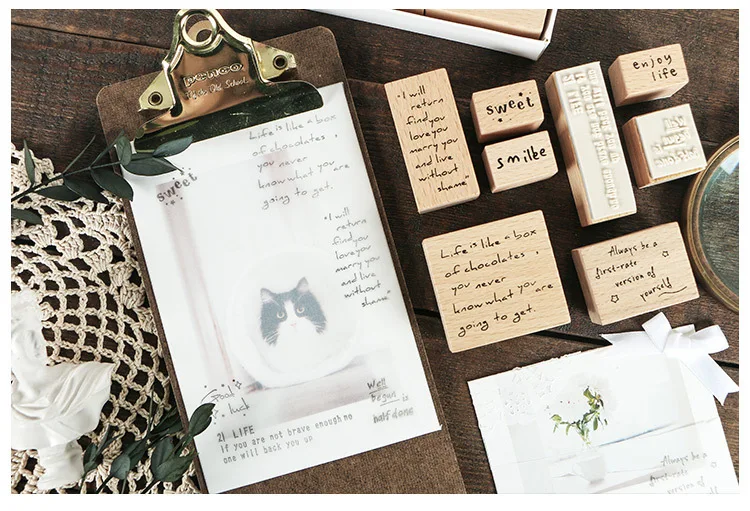 PENCO
Life is like a box
of chocolates ,
you never
know what you are
going to get.
sweet
"I will
return
find you
love you
marry you
and live
without
shame"
Good
luck
Well
begun is
half done
21 LIFE
If you are not brave enough no
one will back you up
"I will
return
find you
love you
marry you
and live
without
shame"
sweet
smilke
enjoy
life
Life is like a box
of chocolates ,
you never
know what you are
going to get.
Always be a
first-rate
version of
yourself
Always be a
first-rate
version of